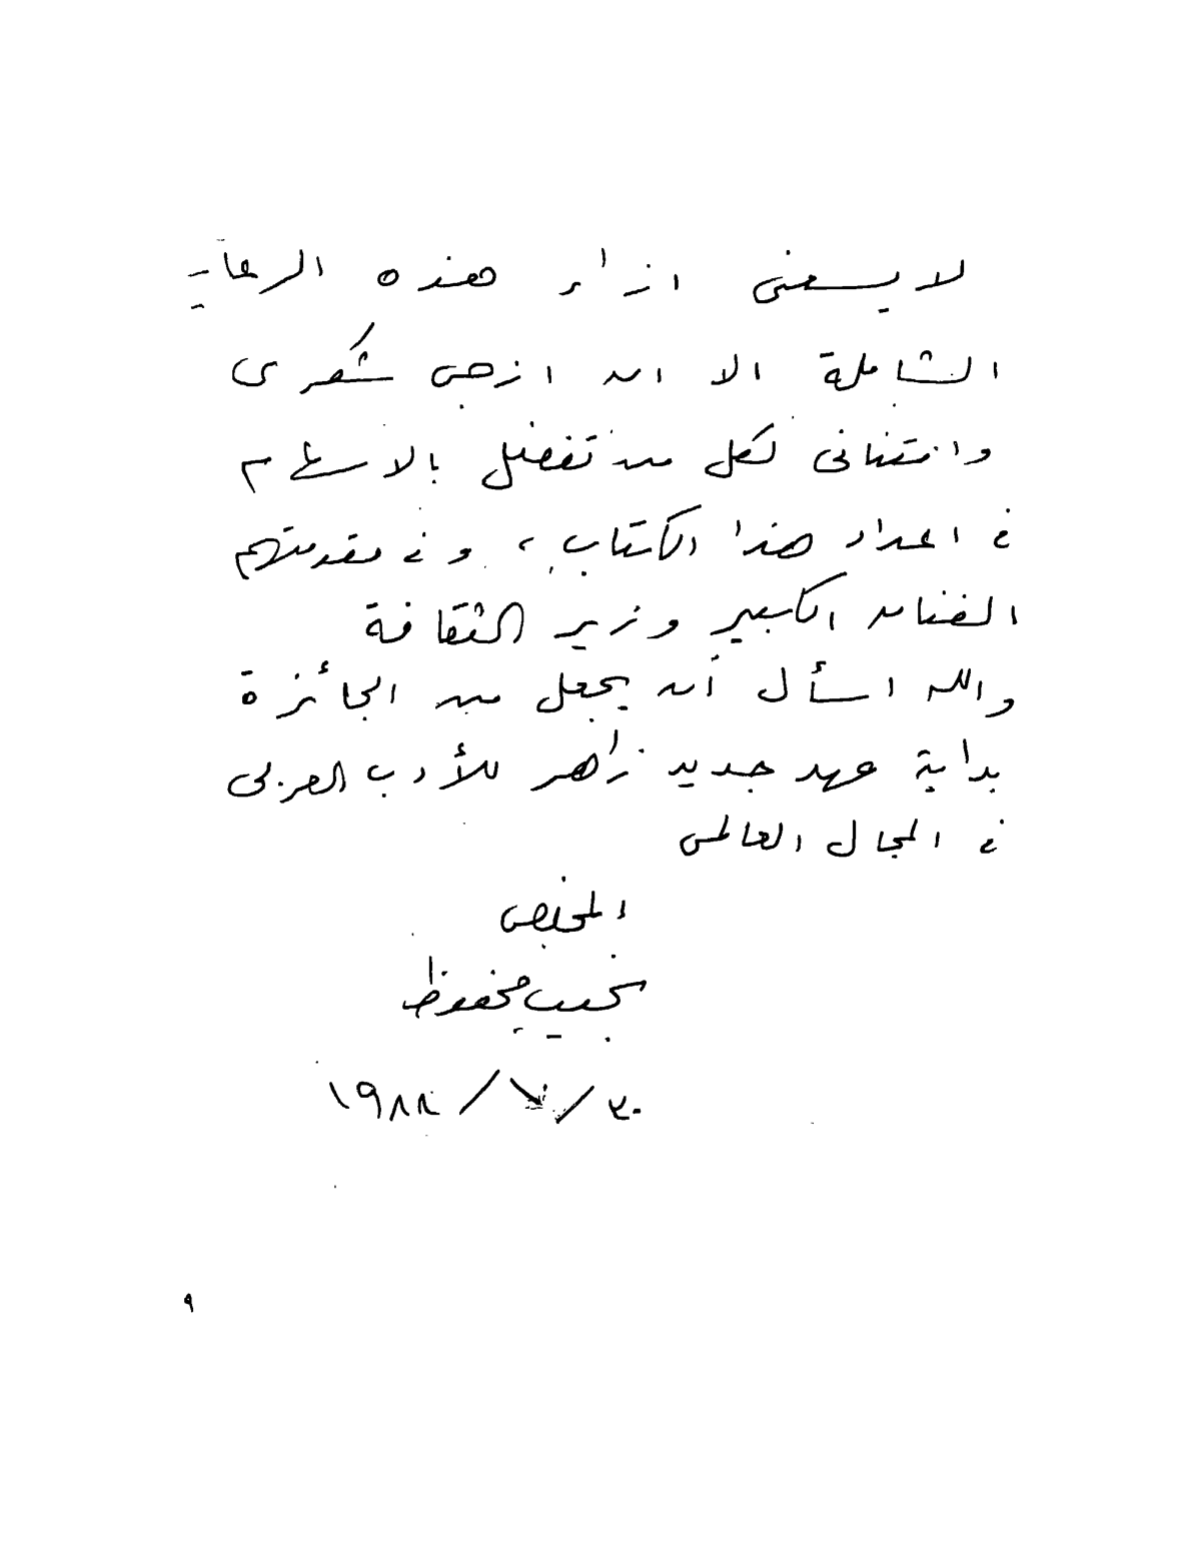 لا يسعنى ازاء هذه الرعاية
الشاملة الا ان ازجى شكرى
وامتنانى لكل من تفضل بالاسهام
فى اعداد هذا الكتاب، وفى مقدمتهم
الفنان الكبير وزير الثقافة
والله اسأل أن يجعل من الجائزة
بداية عهد جديد زاهر للأدب العربى
فى المجال العالمى
المخلص
نجيب محفوظ
١٩٨٨/ /٣٠
٩